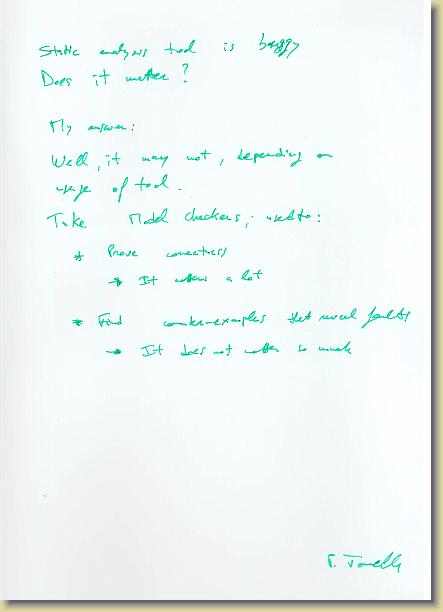 Static analysis tool is buggy
Does it matter?
My answer:
Well, it may not, depending on
usage of tool.
Take Model checkers, used to:
* Prove correctness
→ It matters a lot
* Find counter-examples that reveal faults
→ It does not matter so much
P. Tonella